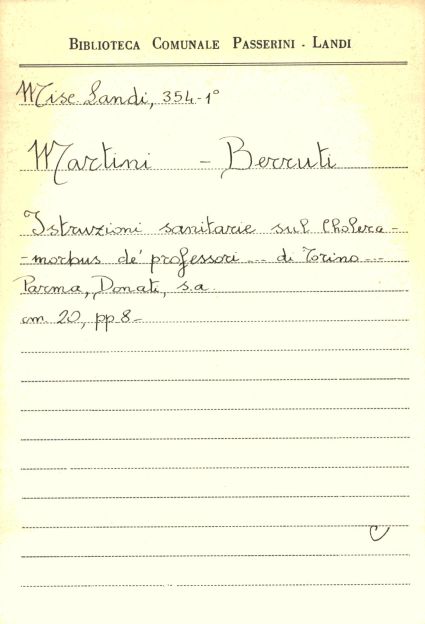 BIBLIOTECA COMUNALE PASSERINI - LANDI
Misc. Landi, 354-1°
Martini - Berruti
Istruzioni sanitarie sul Cholera-
-morbus de' professori ... di Torino ...
Parma, Donati, s.a.
cm 20, pp 8-
C